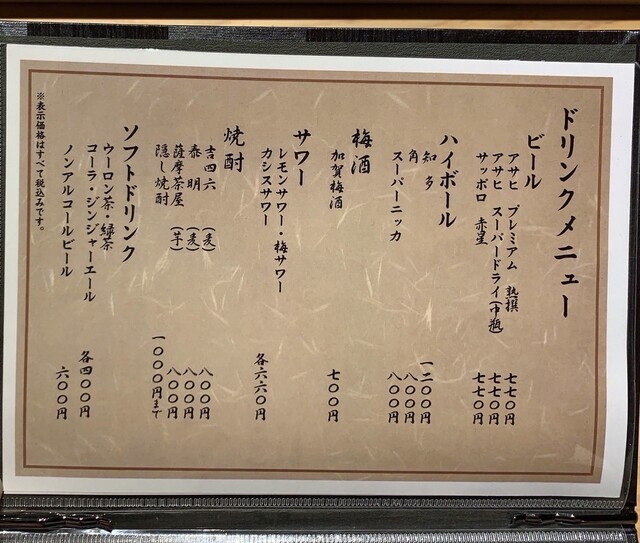 ドリンクメニュー
ビール
アサヒ プレミアム 熟撰 七七〇円
アサヒ スーパードライ(中瓶) 七七〇円
サッポロ 赤星 七七〇円
ハイボール
知多 一二〇〇円
角 八〇〇円
スーパーニッカ 八〇〇円
梅酒
加賀梅酒 七〇〇円
サワー
レモンサワー・梅サワー
カシスサワー 各六六〇円
焼酎
吉四六 (麦) 八〇〇円
泰明 (麦) 八〇〇円
薩摩茶屋 (芋) 八〇〇円
隠し焼酎 一〇〇〇円まで
ソフトドリンク
ウーロン茶・緑茶
コーラ・ジンジャーエール 各四〇〇円
ノンアルコールビール 六〇〇円
※表示価格はすべて税込みです。